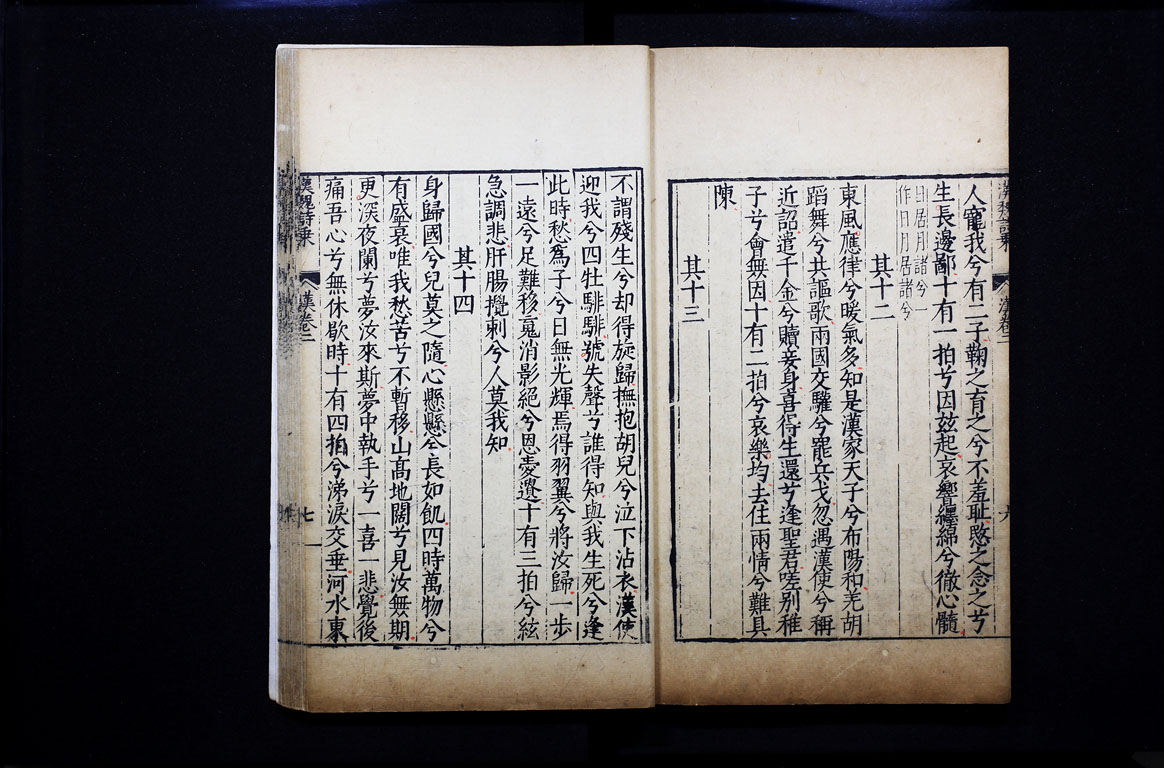 人寵我兮有二子鞠之育之兮不羞耻愍之念之兮
生長邊鄙十有一拍兮因玆起哀響纏綿兮徹心髓
日居月諸兮一
作日月居諸兮
其十二
東風應律兮暖氣多知是漢家天子兮布陽和羌胡
蹈舞兮共謳歌兩國交驩兮罷兵戈忽遇漢使兮稱
近詔遣千金兮贖妾身喜得生還兮逢聖君嗟别稚
子兮會無因十有二拍兮哀樂均去住兩情兮難具
陳
其十三
不謂殘生兮却得旋歸撫抱胡兒兮泣下沾衣漢使
迎我兮四牡騑騑號失聲兮誰得知與我生死兮逢
此時愁爲子兮日無光輝焉得羽翼兮將汝歸一步
一遠兮足難移䰟消影絕兮恩愛遺十有三拍兮絃
急調悲肝腸攪刺兮人莫我知
其十四
身歸國兮兒莫之隨心懸懸兮長如飢四時萬物兮
有盛衰唯我愁苦兮不暫移山髙地闊兮見汝無期
更深夜闌兮夢汝來斯夢中執手兮一喜一悲覺後
痛吾心兮無休歇時十有四拍兮涕淚交垂河水東
漢魏詩乘
漢卷三
七